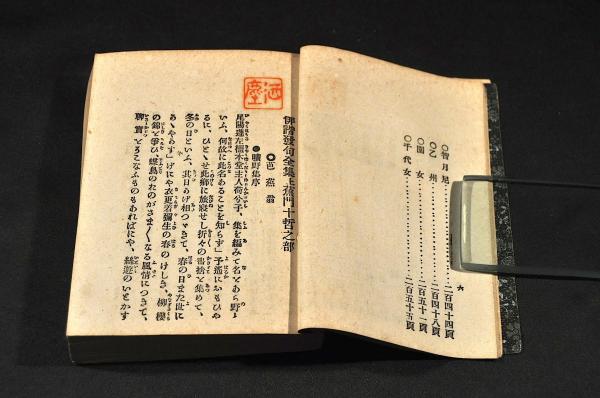 六
○智月尼‥‥‥‥二百四十四頁
○乙州‥‥‥‥二百四十八頁
○園女‥‥‥‥二百五十一頁
○千代女‥‥‥‥二百五十五頁
俳諧發句全集上蕉門十哲之部
○芭蕉翁
●曠野集序
尾陽蓬左橿木堂主人荷兮子、集を編みて名をあら野と
いふ、何故に此名あることを知らず」予遙におもひや
るに、ひとゝせ此郷に旅寢せし折々の書捨を集めて、
冬の日といふ、其日かげ相つゞきて、春の日また世に
かゞやかす」げにや衣更着彌生の春のけしき、柳櫻
の錦を爭ひ、蝶鳥のおのがさま〴〵なる風情につきて、
聊實をそこなふものもあればにや、絲遊のいとかす